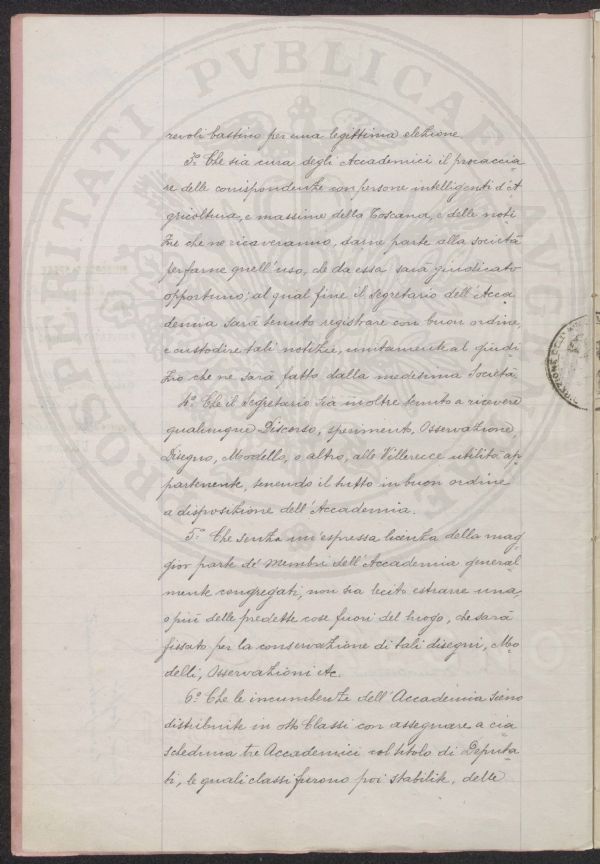 revoli bastino per una legittima elezione
3.º Che sia cura degli Accademici il procaccia
re delle corrispondenze con persone intelligenti d'A
gricoltura, e massime della Toscana, e delle noti
zie che ne ricaveranno, darne parte alla società
per farne quell'uso, che da essa sarà giudicato
opportuno; al qual fine il Segretario dell'Acca
demia sarà tenuto registrare con buon ordine,
e custodire tali notizie, unitamente al giudi
zio che ne sarà fatto dalla medesima Società
4.º Che il segretario sia inoltre tenuto a ricevere
qualunque Discorso, sperimento, Osservazione
Disegno, Modello, o altro, alle Villerecce utilità ap
partenente, tenendo il tutto in buon ordine
a disposizione dell'Accademia.
5.º Che senza un'espressa licenza della mag
gior parte de' Membri dell'Accademia general
mente congregati, non sia lecito estrarre una,
o più delle predette cose fuori del luogo, che sarà
fissato per la conservazione di tali disegni, Mo
delli, Osservazioni &c.
6.º Che le incumbenze dell'Accademia sieno
distribuite in otto Classi con assegnare a cia
scheduna tre Accademici col titolo di Deputa
ti, le quali classi furono poi stabilite, delle
PROSPERITATI PVBLICAE AVGENDAE